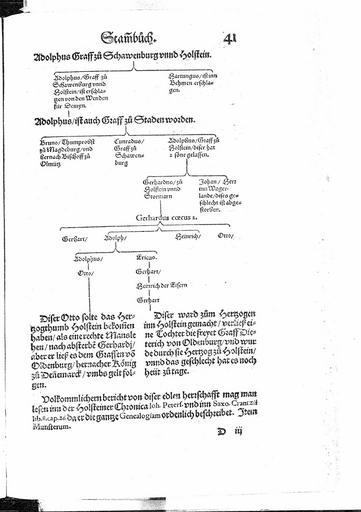 Stam̃bůch. 41
Adolphus Graff zů Schawenburg vnnd Holstein.
Adolphus/ Graff zů
Schawenburg vnnd
Holstein/ ist erschla-
gen von den Wenden
für Demyn.
Hartungus/ ist inn
Behmen erschla-
gen.
Adolphus/ ist auch Graff zů Staden worden.
Bruno/ Thumprobst
zů Magdeburg/ vnd
hernach Bischoff zů
Olmütz
Cunradus/
Graff zů
Schawen-
burg
Adolphus/ Graff zů
Holstein/ diser hat
2 söne gelassen.
Gerhardus/ zů
Holstein vnnd
Stormarn
Johan/ Herr
inn Wager-
lande/ dises ge-
schlecht ist abge-
storben.
Gerhardus cæcus 2.
Gerhart/ Adolph/ Heinrich/ Otto/
Adolphus/ Ericus.
Otto/ Gerhart/
Henrich der Eisern
Gerhart
Diser Otto solte das Her-
tzogthumb Holstein bekom̃en
haben/ als eine rechte Mansle
hen/ nach absterbẽ Gerhardj/
aber er ließ es dem Graffen võ
Oldenburg/ hernacher König
zů Dennmarck/ vmbs gelt fol-
gen.
Diser ward zům Hertzogen
inn Holstein gemacht/ verließ ei-
ne Tochter die freyet Graff Die-
terich von Oldenburg/ vnd wur
de durch sie Hertzog zů Holstein/
vnnd das geschlecht hat es noch
heüt zů tage.
Volkommlichern bericht von diser edlen herrschafft mag man
lesen inn der Holsteiner Chronica Joh. Peters/ vnd inn Saxo. Crantzii
lib.8.cap.26 da er die gantze Genealogiam ordenlich beschreibet. Item
Munsterum.
D iij